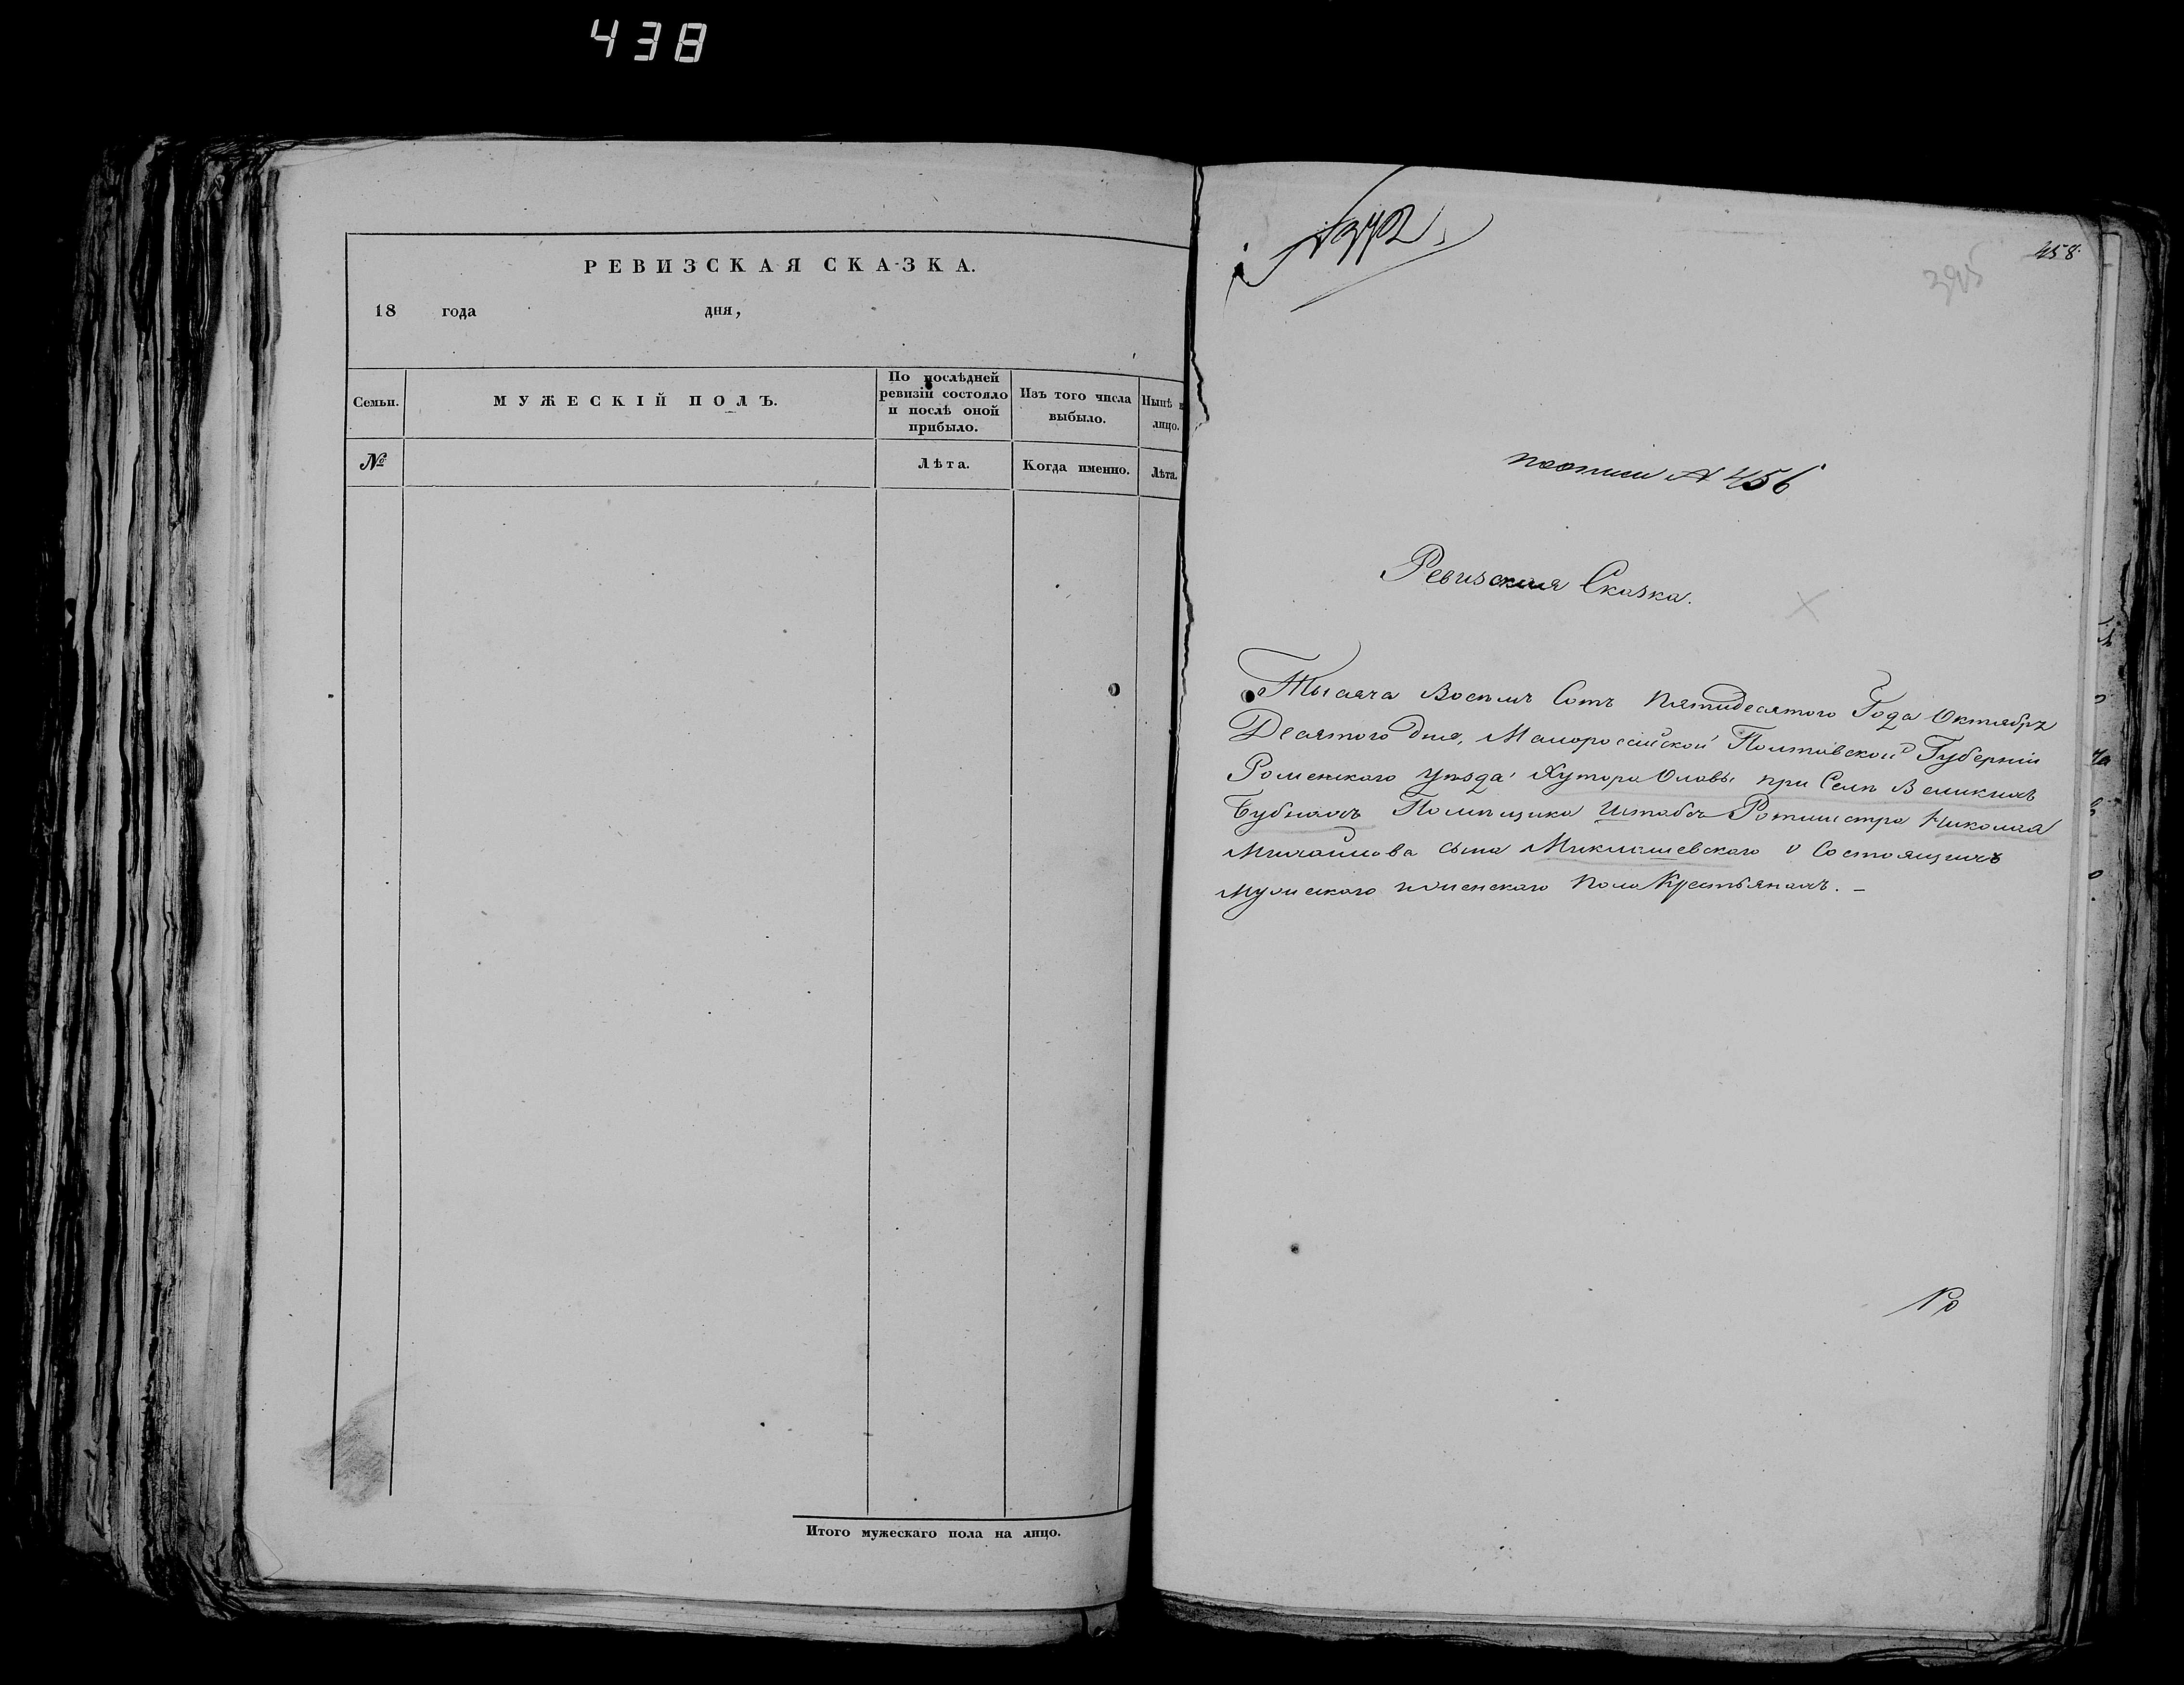 438
РЕВИЗСКАЯ СКАЗКА.
18 года дня,
Семьи.
МУЖЕСКІЙ ПОЛЪ.
По послѣдней ревизіи состояло и послѣ оной прибыло.
Изъ того числа выбыло.
Нынѣ
лицо.
№
Лѣта.
Когда именно.
Лѣта.
Итого мужескаго пола на лицо.
458
поописи № 456
Ревизская Сказка.
Тысяча Восемь Сотъ Пятидесятого Года Октября
Десятого дня, Малороссійской Полтавской Губерніи
Роменского уѣзда Хутора Олавы при Селѣ Великихъ
Бубнахъ Помѣщика Штабсъ Ротмистра Николая
Михайлова сына Миклашевского о Состоящихъ
Мужеского иженского Пола Крестьянахъ. —